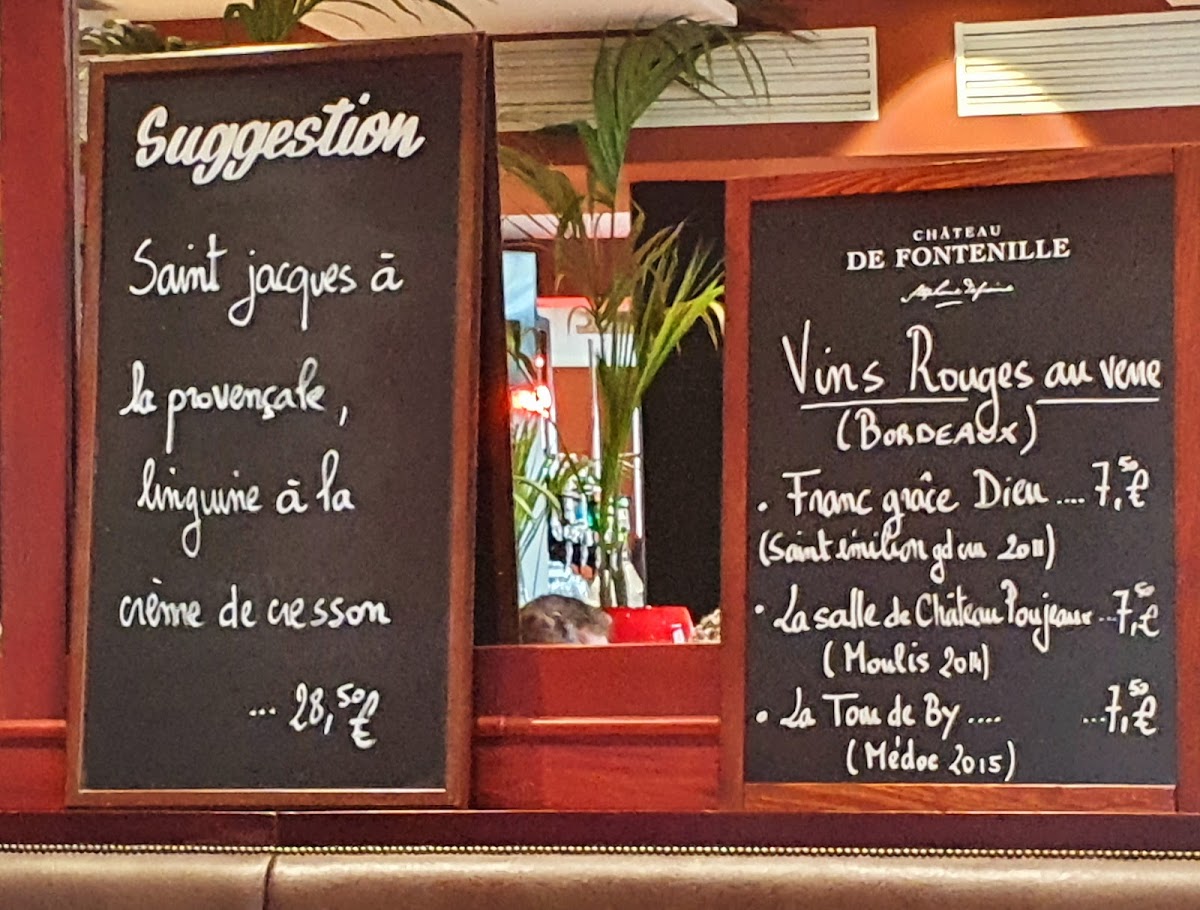 Suggestion
Saint jacques à
la provençale,
linguine à la
crème de cresson
... 28,50€
CHÂTEAU
DE FONTENILLE
Vins Rouges au verre
(BORDEAUX)
• Franc grâce Dieu .... 7,50€
(Saint émilion gd cru 2011)
• La salle de Château Poujeaux ... 7,50€
(Moulis 2014)
• La Tour de By .... ... 7,50€
(Médoc 2015)